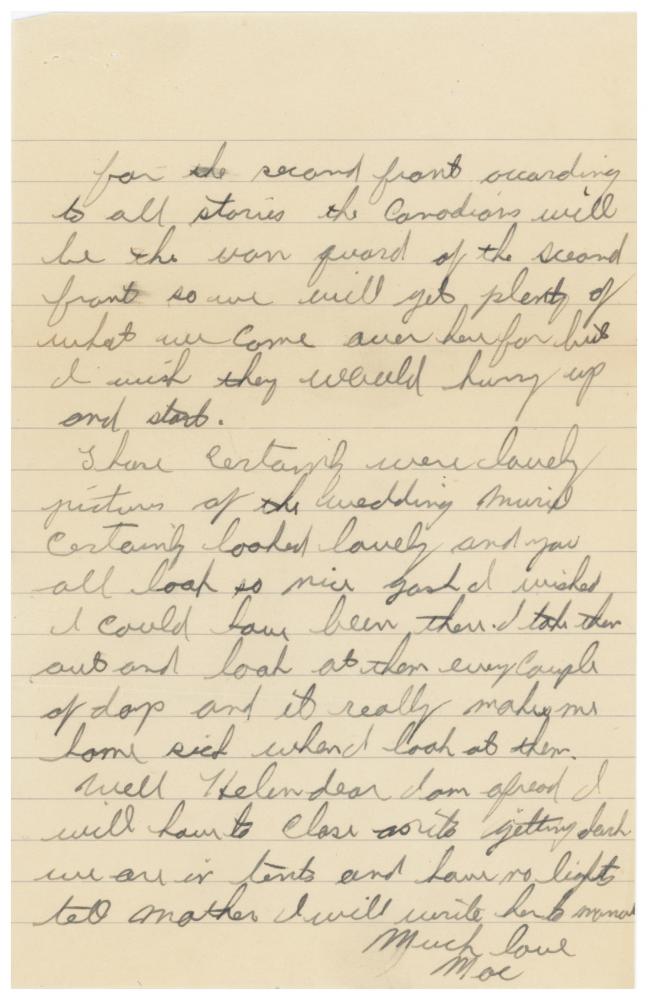 for the second front according
to all stories the Canadians will
be the van guard of the second
front so we will get plenty of
what we come over here for but
I wish they would hurry up
and start.
Those certainly were lovely
pictures of the wedding Muriel
certainly looked lovely and you
all look so nice gosh I wished
I could have been there. I take them
out and look at them every couple
of days and it really makes me
home sick when I look at them.
Well Helen dear I am afraid I
will have to close as its getting dark
we are in tents and have no lights
tell mother I will write her to
Much love
Mac